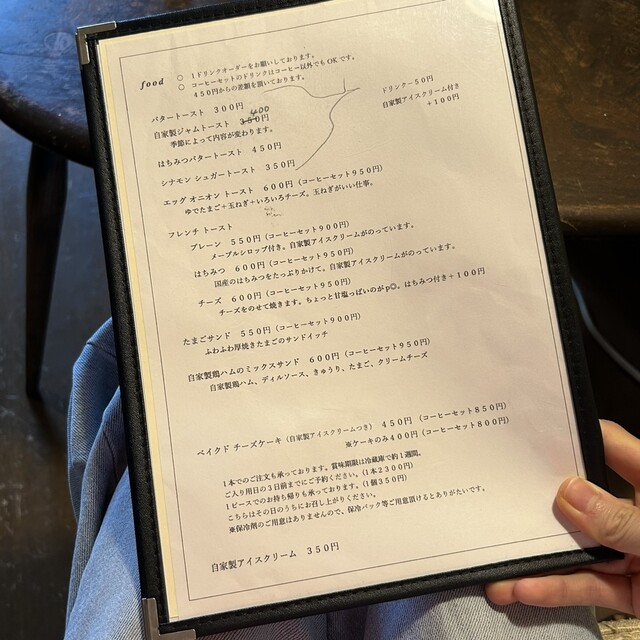 food
○ 1ドリンクオーダーをお願いしております。
○ コーヒーセットのドリンクはコーヒー以外でもOKです。
450円からの差額を頂いております。
ドリンク－50円
自家製アイスクリーム付き
＋100円
バタートースト 300円
400
自家製ジャムトースト 350円
季節によって内容が変わります。
はちみつバタートースト 450円
シナモン シュガートースト 350円
エッグ オニオン トースト 600円（コーヒーセット950円）
ゆでたまご＋玉ねぎ＋いろいろチーズ。玉ねぎがいい仕事。
フレンチ トースト
プレーン 550円（コーヒーセット900円）
メープルシロップ付き。自家製アイスクリームがのっています。
はちみつ 600円（コーヒーセット950円）
国産のはちみつをたっぷりかけて。自家製アイスクリームがのっています。
チーズ 600円（コーヒーセット950円）
チーズをのせて焼きます。ちょっと甘塩っぱいのがp◎。はちみつ付き＋100円
たまごサンド 550円（コーヒーセット900円）
ふわふわ厚焼きたまごのサンドイッチ
自家製鶏ハムのミックスサンド 600円（コーヒーセット950円）
自家製鶏ハム、ディルソース、きゅうり、たまご、クリームチーズ
ベイクド チーズケーキ（自家製アイスクリームつき） 450円（コーヒーセット850円）
※ケーキのみ400円（コーヒーセット800円）
1本でのご注文も承っております。賞味期限は冷蔵庫で約1週間。
ご入り用日の3日前までにご予約ください。（1本2300円）
1ピースでのお持ち帰りも承っております。（1個350円）
こちらはその日のうちにお召し上がりください。
※保冷剤のご用意はありませんので、保冷パック等ご用意頂けるとありがたいです。
自家製アイスクリーム 350円